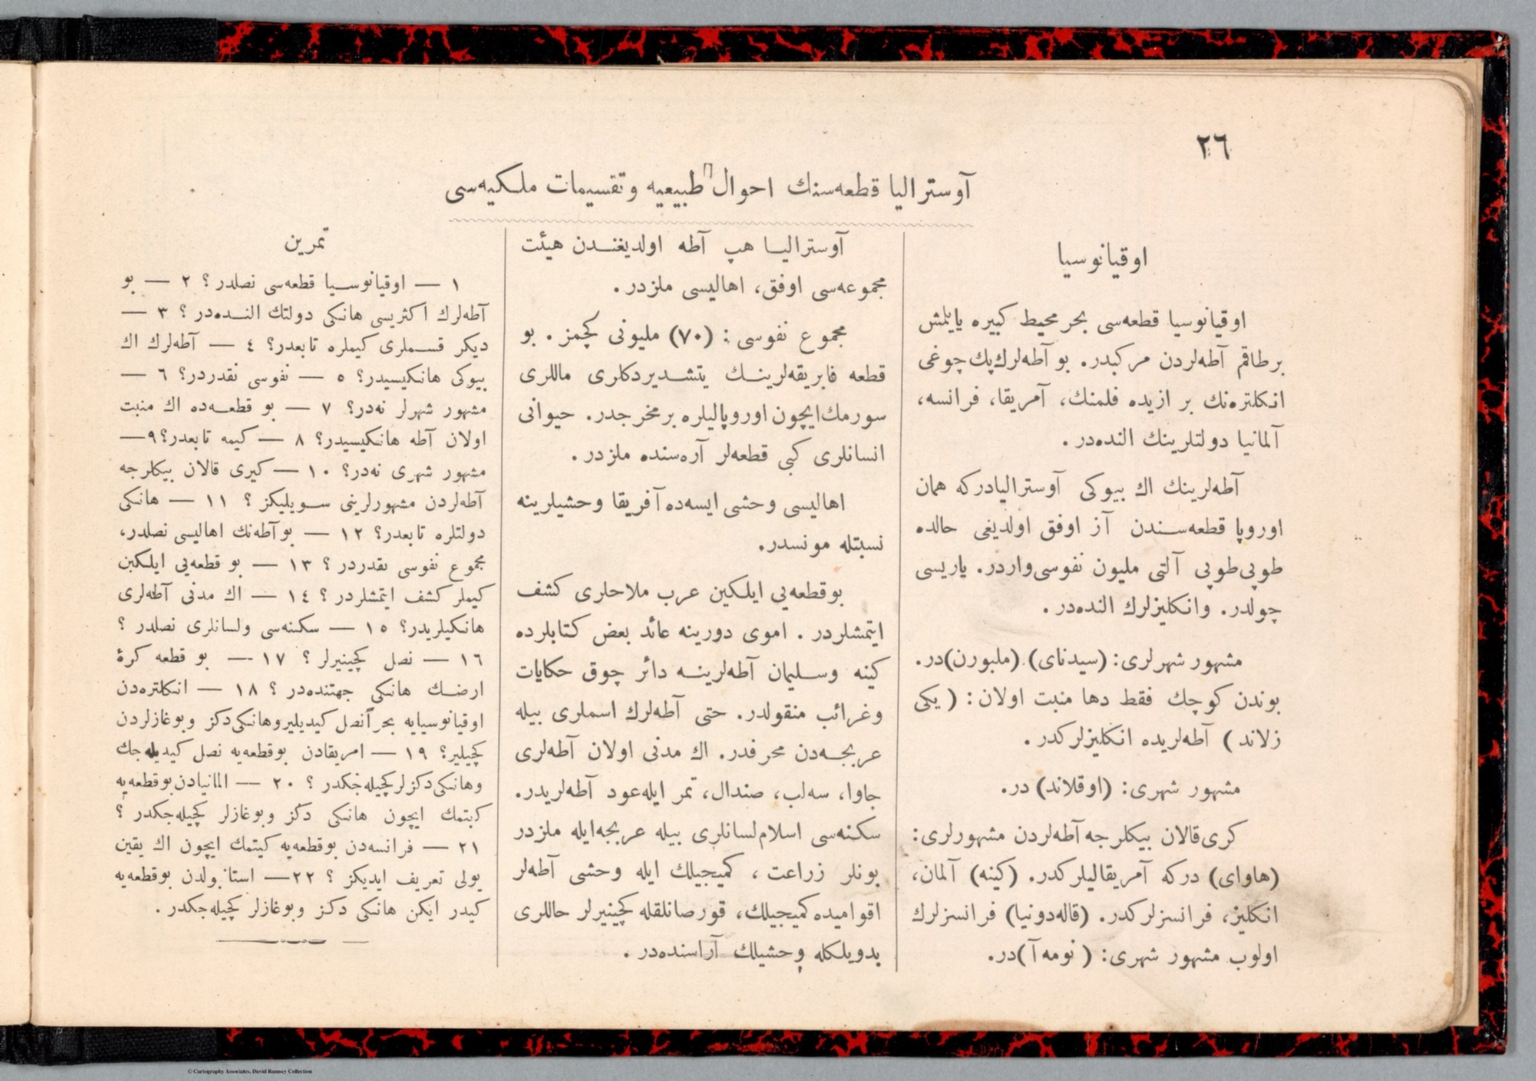 ٢٦
آوستراليا قطعه‌سنك احوال طبيعيه وتقسيمات ملكيه‌سى
اوقيانوسيا
اوقيانوسيا قطعه‌سى بحر محيط كبيره يايلمش
برطاقم آطه‌لردن مركبدر. بو آطه‌لرك‌پك چوغى
انكلتره‌نك بر ازيده فلمنك، آمريقا، فرانسه،
آلمانيا دولتلرينك النده‌در .
آطه‌لرينك اك بيوكى آوسترالياdركه همان
اوروپا قطعه‌سندن آز اوفق اولديغى حالده
طوپى‌طوپى آلتى مليون نفوسى‌واردر. ياريسى
چولدر. وانكليزلرك النده‌در .
مشهور شهرلرى: (سيدناى) (ملبورن)در.
بوندن كوچك فقط دها منبت اولان: ( يكى
زلاند ) آطه‌لريده انكليزلركدر .
مشهور شهرى: (اوقلاند) در.
كرى‌قالان بيكلرجه آطه‌لردن مشهورلرى:
(هاواى) دركه آمريقاليلركدر. (كينه) آلمان،
انكليز، فرانسزلركدر. (قاله‌دونيا) فرانسزلرك
اولوب مشهور شهرى: ( نومه‌آ )در.
آوستراليا هپ آطه اولديغندن هيئت
مجموعه‌سى اوفق، اهاليسى ملزدر .
مجموع نفوسى : (٧٠) مليونى كچمز . بو
قطعه فابريقه‌لرينك يتشديردكلرى ماللرى
سورمك‌ايچون اوروپاليلره برمخرجدر. حيوانى
انسانلرى كبى قطعه‌لر آره‌سنده ملزدر .
اهاليسى وحشى ايسه‌ده آفريقا وحشيلرينه
نسبتله مونسدر.
بوقطعه‌يى ايلكين عرب ملاحلرى كشف
ايتمشلردر . اموى دورينه عائد بعض كتابلرده
كينه وسليمان آطه‌لرينه دائر چوق حكايات
وغرائب منقولدر. حتى آطه‌لرك اسملرى بيله
عربجه‌دن محرفدر. اك مدنى اولان آطه‌لرى
جاوا، سه‌لب، صندال، تمر ايله‌عود آطه‌لريدر.
سكنه‌سى اسلام‌لسانلرى بيله عربجه‌ايله ملزدر
بونلر زراعت ، كميجيلك ايله وحشى آطه‌لر
اقواميده‌كميجيلك، قورصانلقله كچينيرلر حاللرى
بدويلكله وحشيلك آراسنده‌در .
تمرين
١ — اوقيانوسيا قطعه‌سى نصلدر ؟ ٢ — بو
آطه‌لرك اكثريسى هانكى دولتك النده‌در ؟ ٣ —
ديكر قسملرى كيملره تابعدر؟ ٤ — آطه‌لرك اك
بيوكى هانكيسيدر؟ ٥ — نفوسى نقدردر؟ ٦ —
مشهور شهرلر نه‌در؟ ٧ — بو قطعه‌ده اك منبت
اولان آطه هانكيسيدر؟ ٨ — كيمه تابعدر؟ ٩—
مشهور شهرى نه‌در؟ ١٠ — كيرى قالان بيكلرجه
آطه‌لردن مشهورلرينى سويليكز ؟ ١١ — هانكى
دولتلره تابعدر؟ ١٢ — بوآطه‌نك اهاليسى نصلدر،
مجموع نفوسى نقدردر ؟ ١٣ — بو قطعه‌يى ايلكين
كيملر كشف ايتمشلردر ؟ ١٤ — اك مدنى آطه‌لرى
هانكيلريدر؟ ١٥ — سكنه‌سى ولسانلرى نصلدر ؟
١٦ — نصل كچينيرلر ؟ ١٧ — بو قطعه كرۀ
ارضك هانكى جهتنده‌در ؟ ١٨ — انكلتره‌دن
اوقيانوسيايه بحراً نصل كيديليروهانكى‌دكز وبوغازلردن
كچيلير؟ ١٩ — امريقادن بوقطعه‌يه نصل كيديله‌جك
وهانكى‌دكزلركچيله‌جكدر ؟ ٢٠ — المانيادن‌بوقطعه‌يه
كيتمك ايچون هانكى دكز وبوغازلر كچيله‌جكدر ؟
٢١ — فرانسه‌دن بوقطعه‌يه كيتمك ايچون اك يقين
يولى تعريف ايديكز ؟ ٢٢— استانبولدن بوقطعه‌يه
كيدر ايكن هانكى دكز وبوغازلر كچيله‌جكدر .
© Cartography Associates, David Rumsey Collection